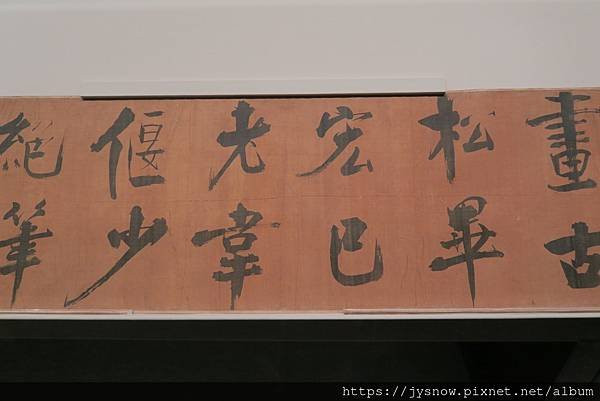 畫古
松畢
宏已
老韋
偃少
絕筆
https://jysnow.pixnet.net/album